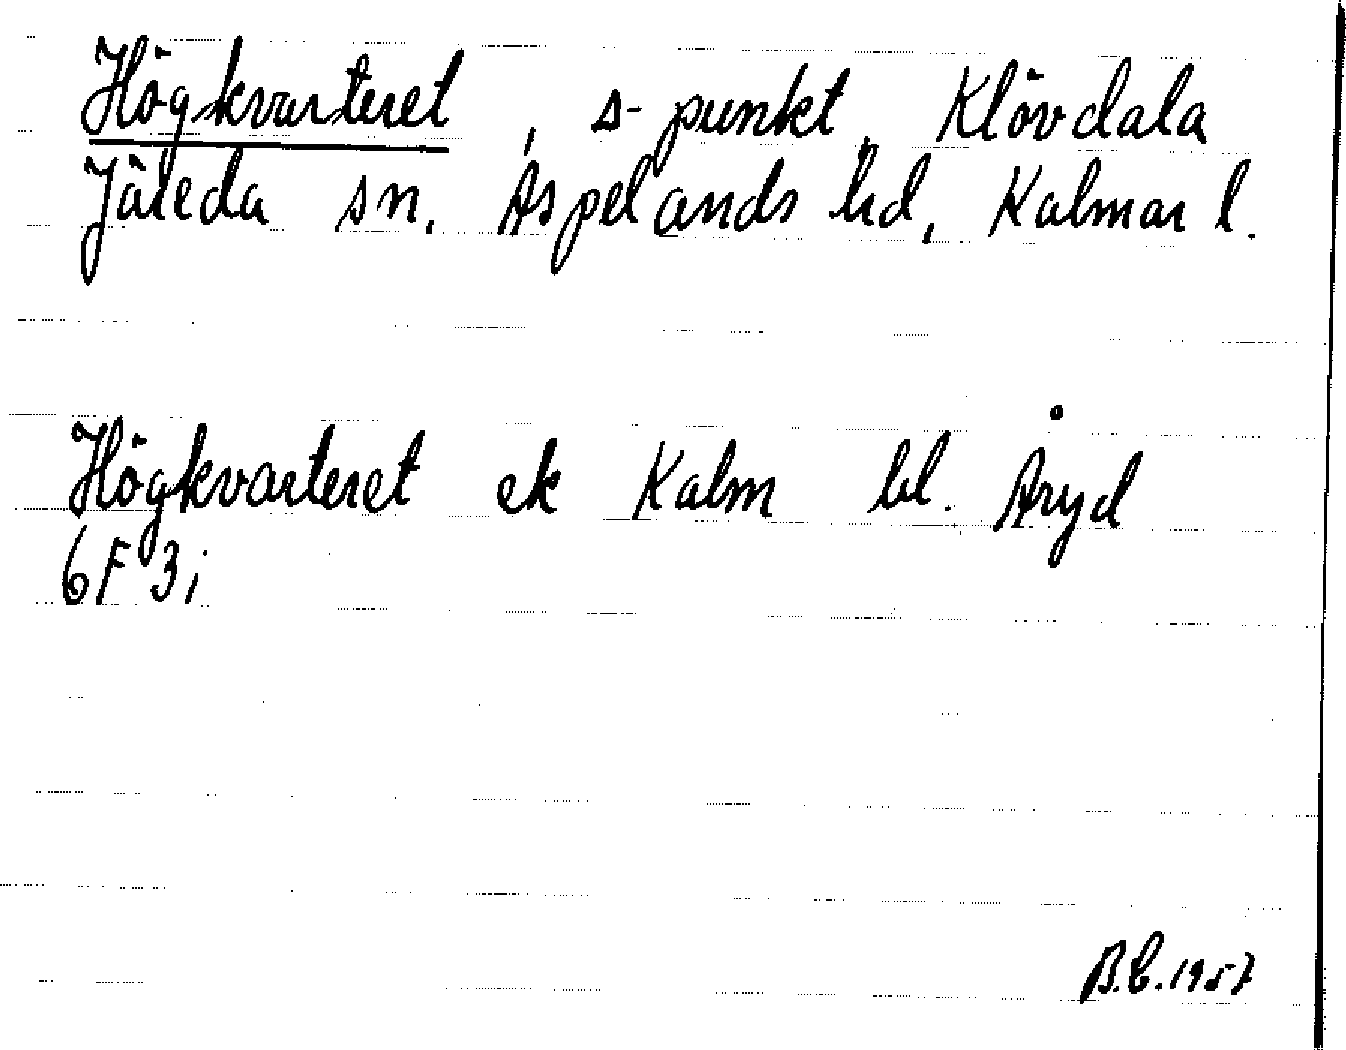 Högkvarteret, s-punkt, Klövdala
Järeda sn, Aspelands hd, Kalmar l.
Högkvarteret ek Kalm bl. Åryd
6F 3i
B.E. 1957